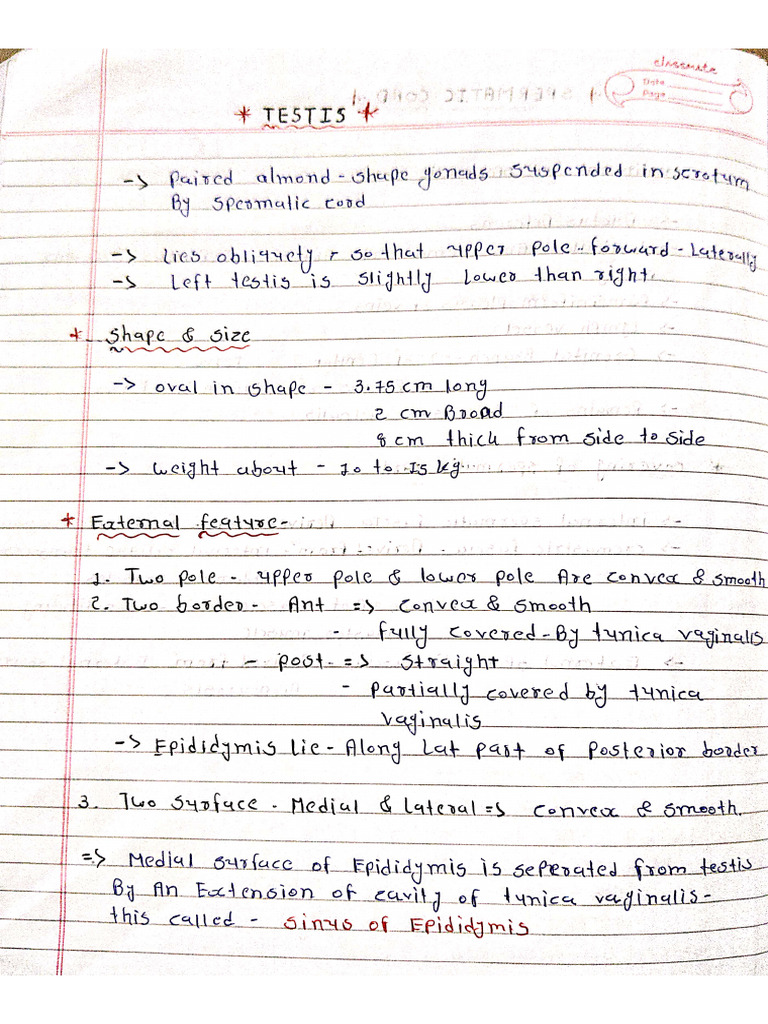 classmate
Date
Page
* TESTIS *
-> Paired almond-shape gonads suspended in scrotum
By Spermalic cord
-> Lies obliquety, so that upper pole-forward-Laterally
-> Left testis is slightly Lower than right.
* Shape & size
-> oval in shape - 3.75 cm long
2 cm Broad
8 cm thick from side to side
-> Weight about - 10 to 15 kg
* External feature-
1. Two pole - upper pole & lower pole Are convex & smooth
2. Two border - Ant => convex & smooth
- fully covered-By tunica vaginalis
- post. => straight
- Partially covered by tunica
vaginalis
-> Epididymis lie - Along Lat part of Posterior border
3. Two surface - Medial & Lateral => convex & smooth.
=> Medial surface of Epididymis is seperated from testis
By An Extension of cavity of tunica vaginalis-
this called - sinus of Epididymis